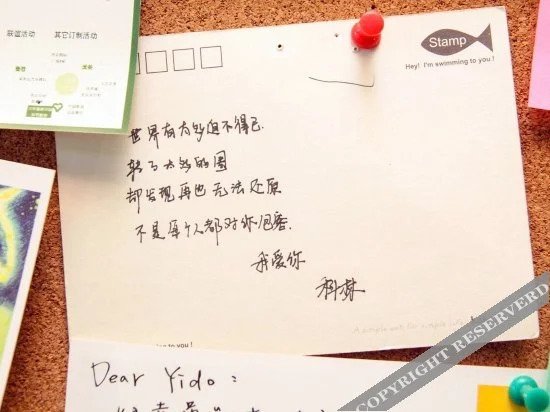 联谊活动 其它订制活动
Stamp
Hey! I'm swimming to you!
世界有太多迫不得已.
转了太多的圈
却发现再也无法还原
不是每个人都对你包容.
我爱你
ing to you!
Dear Yido:
COPYRIGHT RESERVED